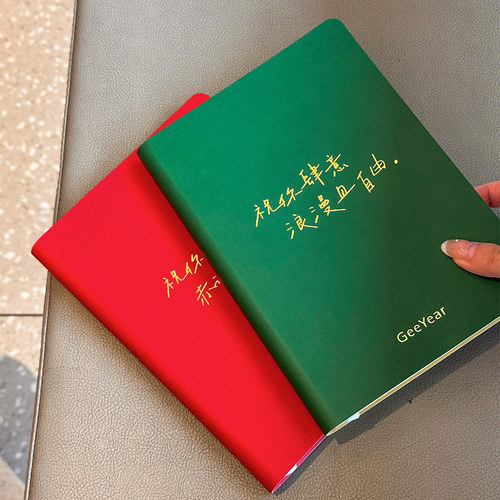 祝你肆意
浪漫且自由.
GeeYear
祝你
赤